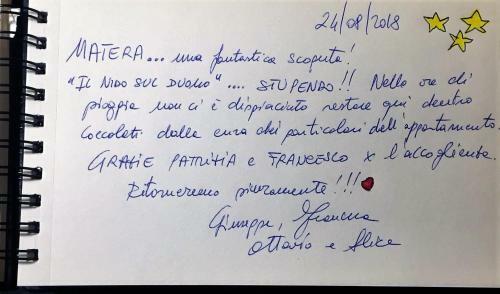 24/08/2018
MATERA... una fantastica scoperta!
"IL NIDO SUL DUOMO".... STUPENDO!! Nelle ore di
pioggia non ci è dispiaciuto restare qui dentro
coccolati dalla cura dei particolari dell'appartamento.
GRAZIE PATRIZIA e FRANCESCO x l'accoglienza.
Ritorneremo sicuramente!!!
Giuseppe,
Ottavio e Alice